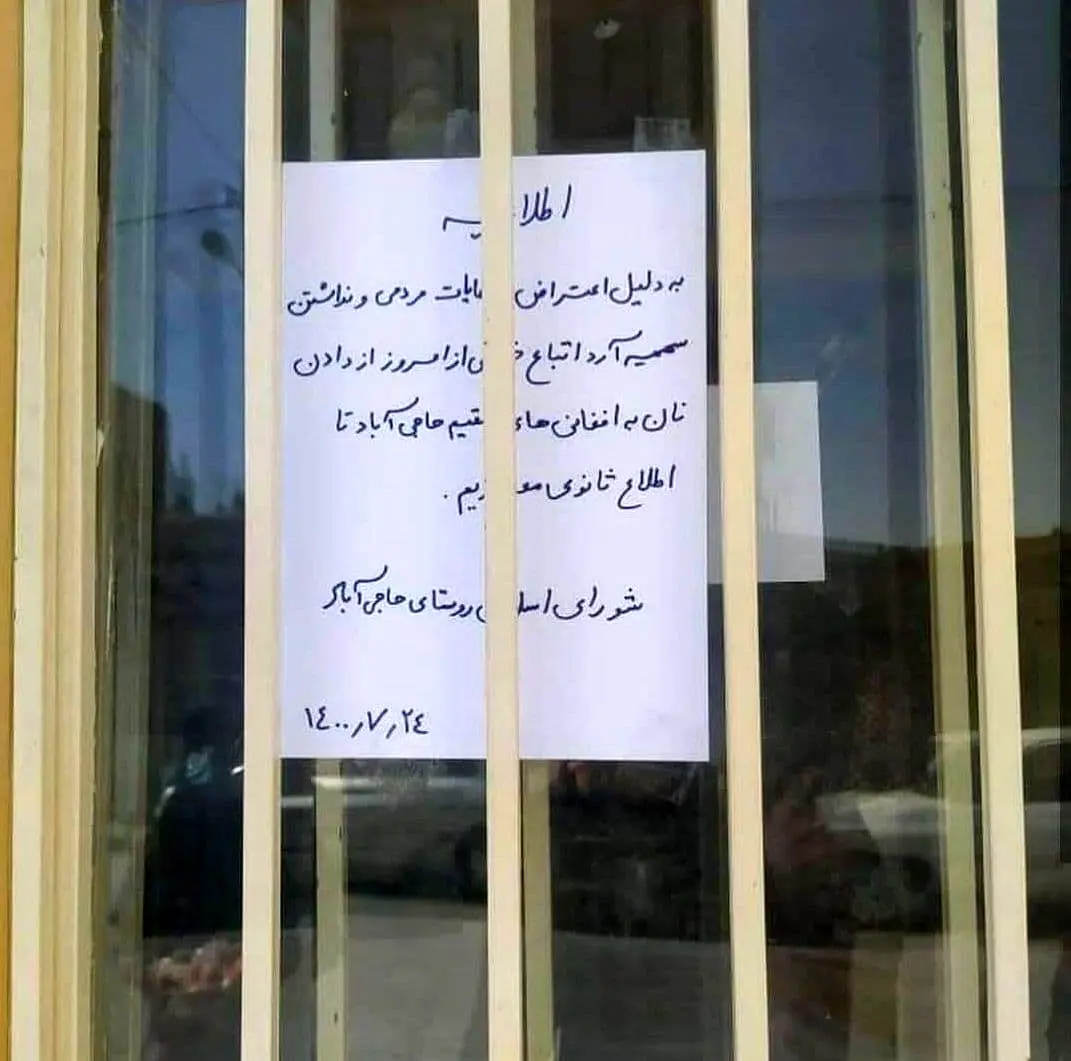 اطلاعیه
به دلیل اعتراض و شکایات مردمی و نداشتن
سهمیه آرد اتباع خارجی از امروز از دادن
نان به افغانی های مقیم حاجی آباد تا
اطلاع ثانوی معذوریم .
شورای اسلامی روستای حاجی آباد
۱۴۰۰٫۷٫۲۴